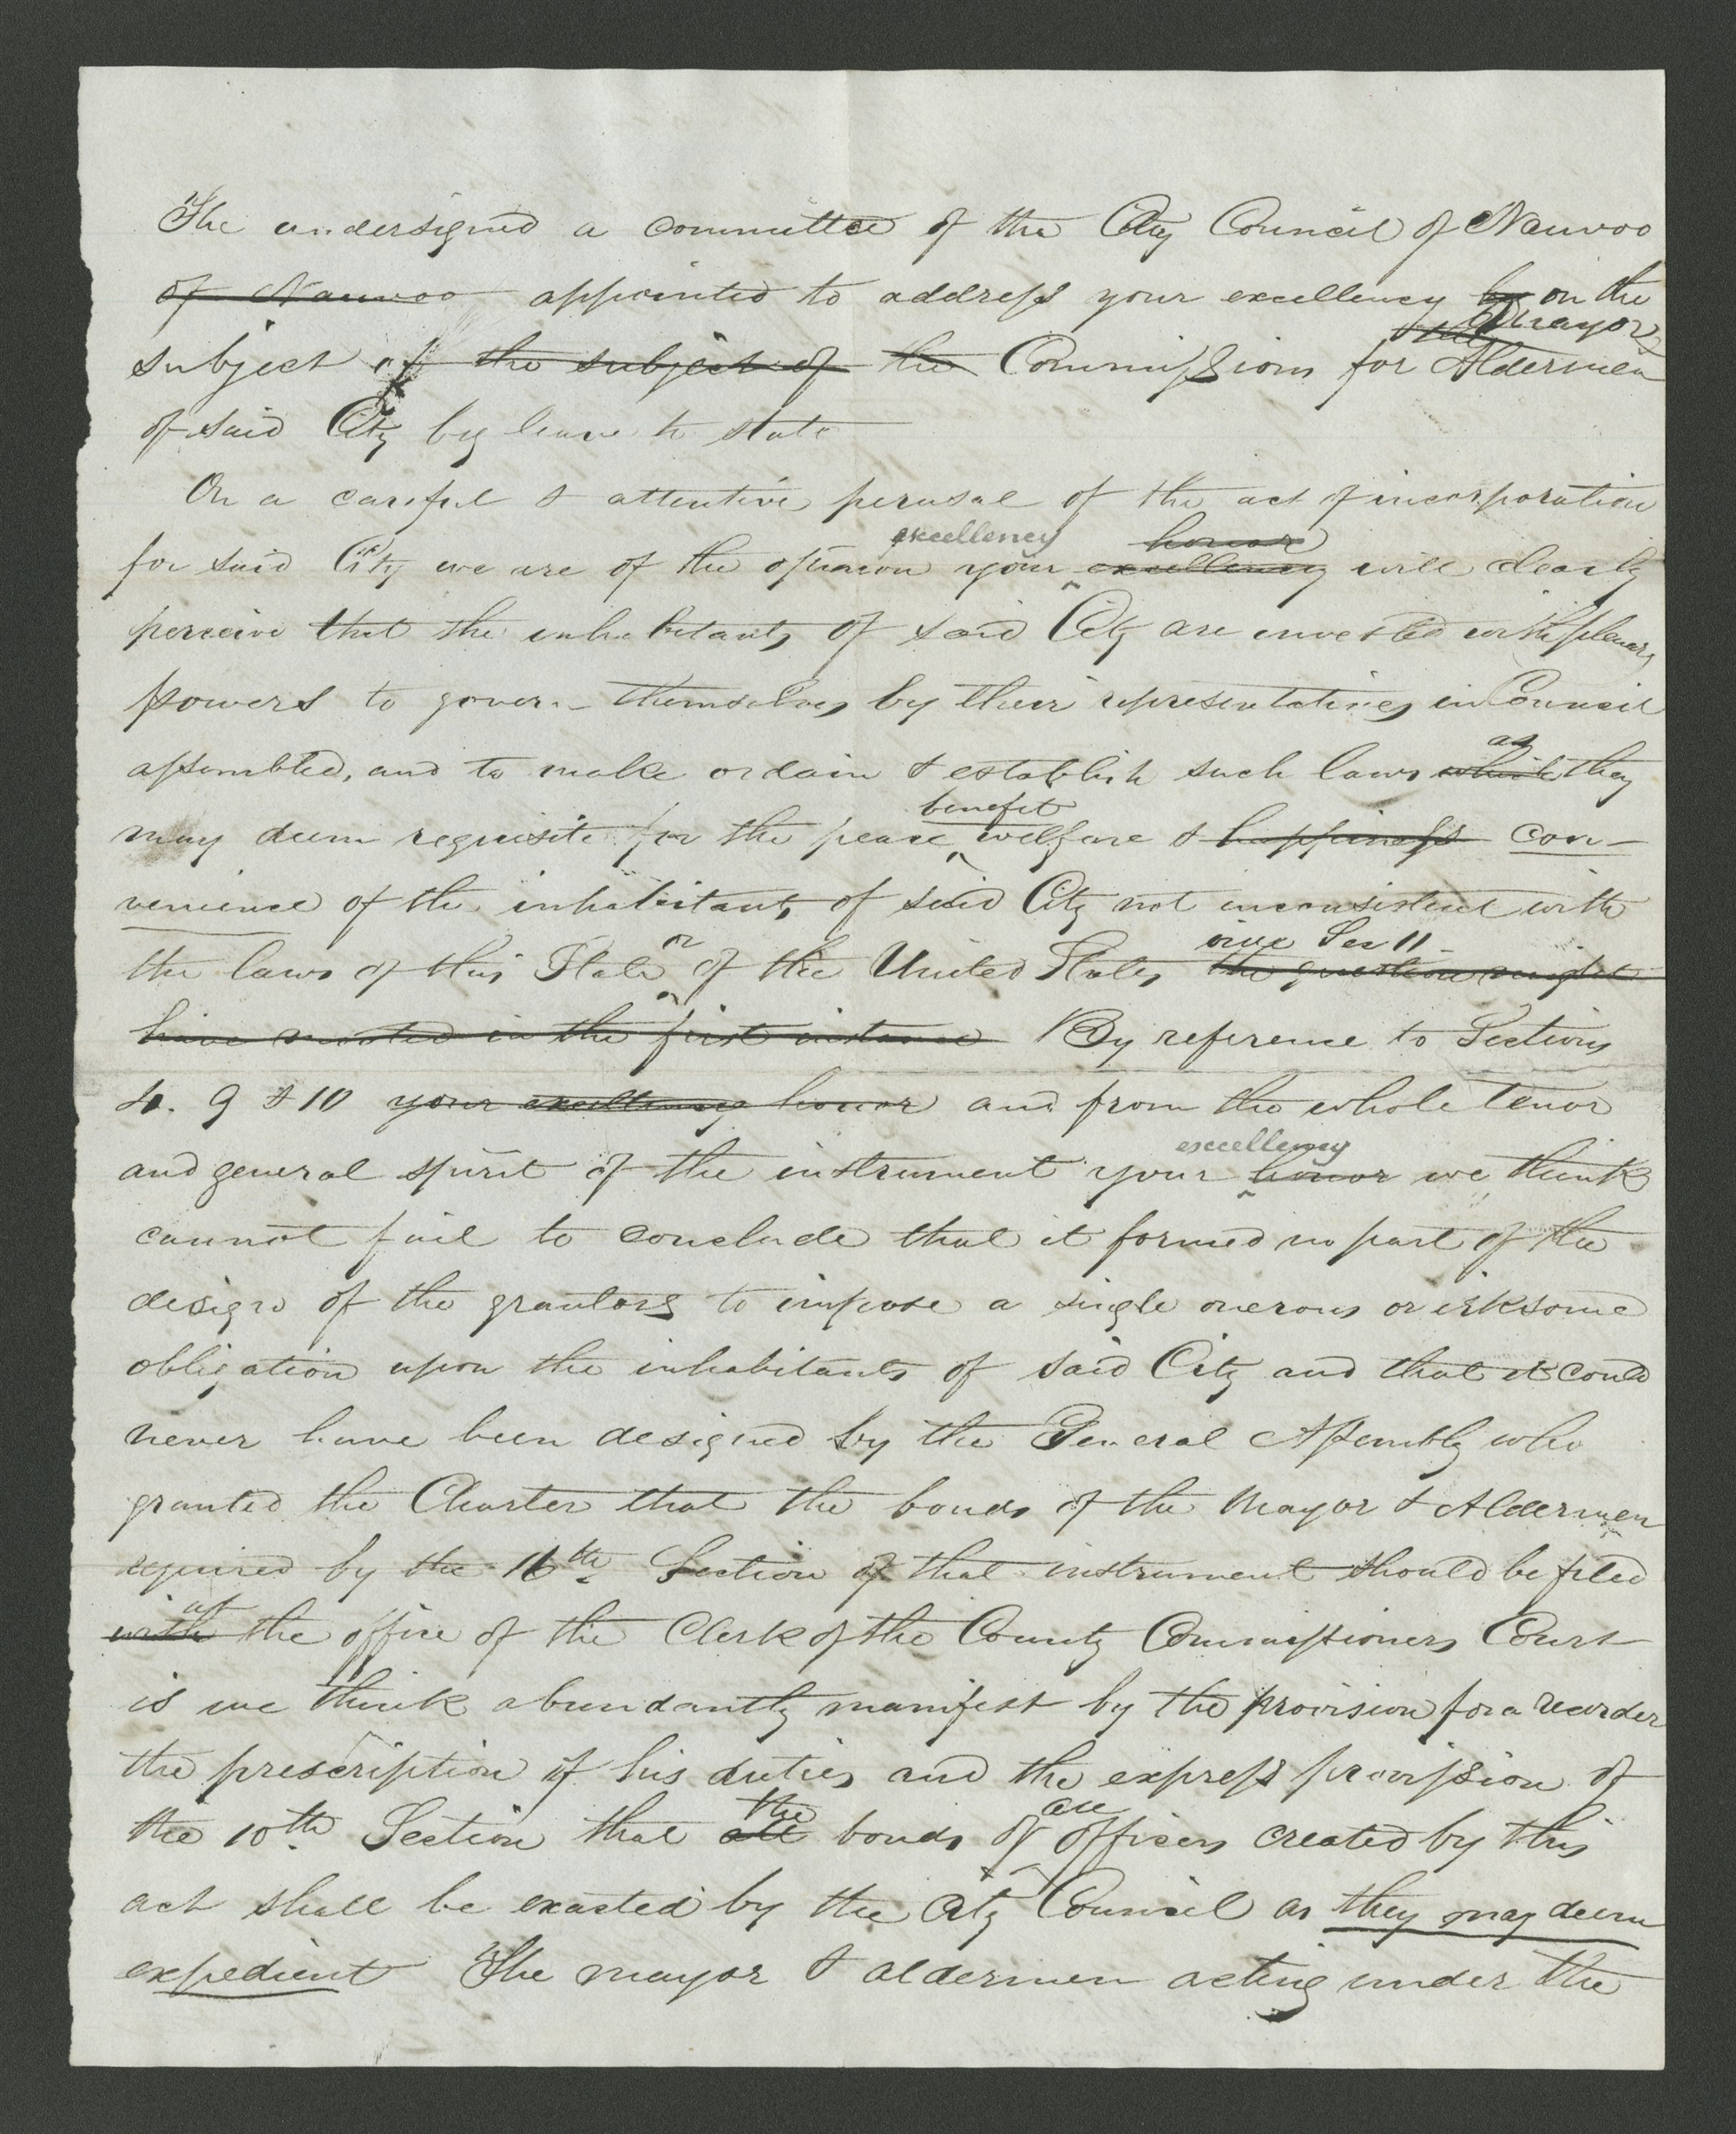 The undersigned a committee of the City Council of Nauvoo
of Nauvoo appointed to address your excellency by on the
Mayor &
subject of the subject of the Commissions for Aldermen
of said City beg leave to state
On a careful & attentive perusal of the act of incorporation
excellency honor
for said City we are of the opinion your excellency will clearly
perceive that the inhabitants of said City are invested with plenary
powers to govern themselves by their representatives in Council
as
assembled, and to make ordain & establish such laws which they
benefit
may deem requisite for the peace welfare & happiness con-
venience of the inhabitants of said City not inconsistent with
or vide Sec 11
the laws of this State of the United States the question might
have rested in the first instance By reference to Sections
4. 9 & 10 your excellency honor and from the whole tenor
excellency
and general spirit of the instrument your honor we think
cannot fail to conclude that it formed no part of the
design of the grantors to impose a single onerous or irksome
obligation upon the inhabitants of said City and that it could
never have been designed by the General Assembly who
granted the Charter that the bonds of the Mayor & Aldermen
required by the 16th Section of that instrument should be filed
at
with the office of the Clerk of the County Commissioners Court
is we think abundantly manifest by the provision for a recorder
the prescription of his duties and the express provission of
the all
the 10th Section that all bonds of officers created by this
act shall be exacted by the City Council as they may deem
expedient The mayor & aldermen acting under the